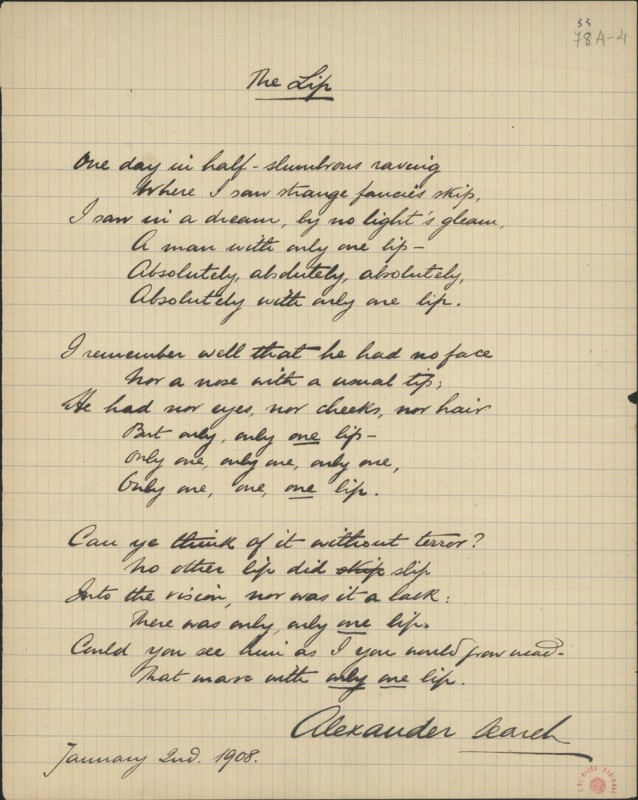 33
78A-4
The Lip
One day in half-slumbrous raving
Where I saw strange fancies skip,
I saw in a dream, by no light's gleam,
A man with only one lip -
Absolutely, absolutely, absolutely,
Absolutely with only one lip.
I remember well that he had no face
Nor a nose with a usual tip;
He had nor eyes, nor cheeks, nor hair
But only, only one lip -
Only one, only one, only one,
Only one, one, one lip.
Can ye think of it without terror?
No other lip did skip slip
Into the vision, nor was it a lack:
There was only, only one lip.
Could you see him as I you would grow mad -
That man with only one lip.
Alexander Search
January 2nd. 1908.